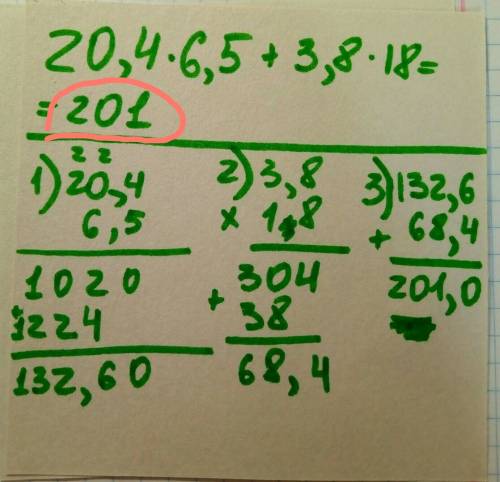 20,4·6,5 + 3,8·18=
=201
1) 2 2
20,4
6,5
1020
+
1224
132,60
2) 3,8
x 18
304
+
38
68,4
3) 132,6
+ 68,4
201,0